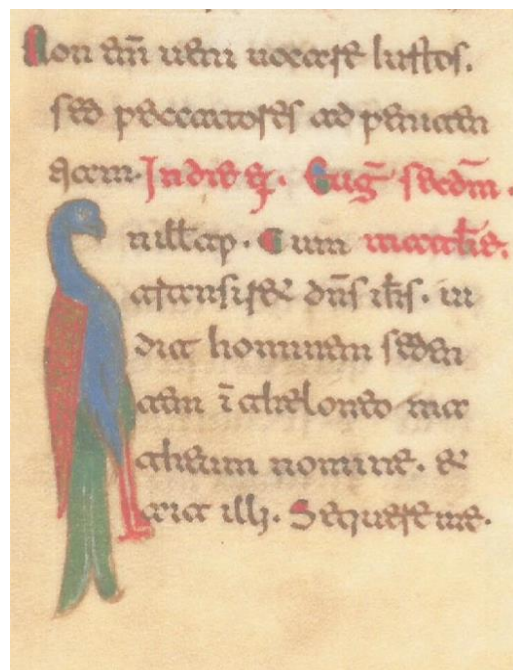 Non eni̅ ueni uocare iustos.
sed peccatores ad peniten
tiam. In die Eug̅ secdm̅.
n ill̅ tēp. Cum mathe̅.
transiret dn̅s ih̅s. ui
dit hominem seden
tem i̅ theloneo ma
theum nomine. et
ait illi. Sequere me.